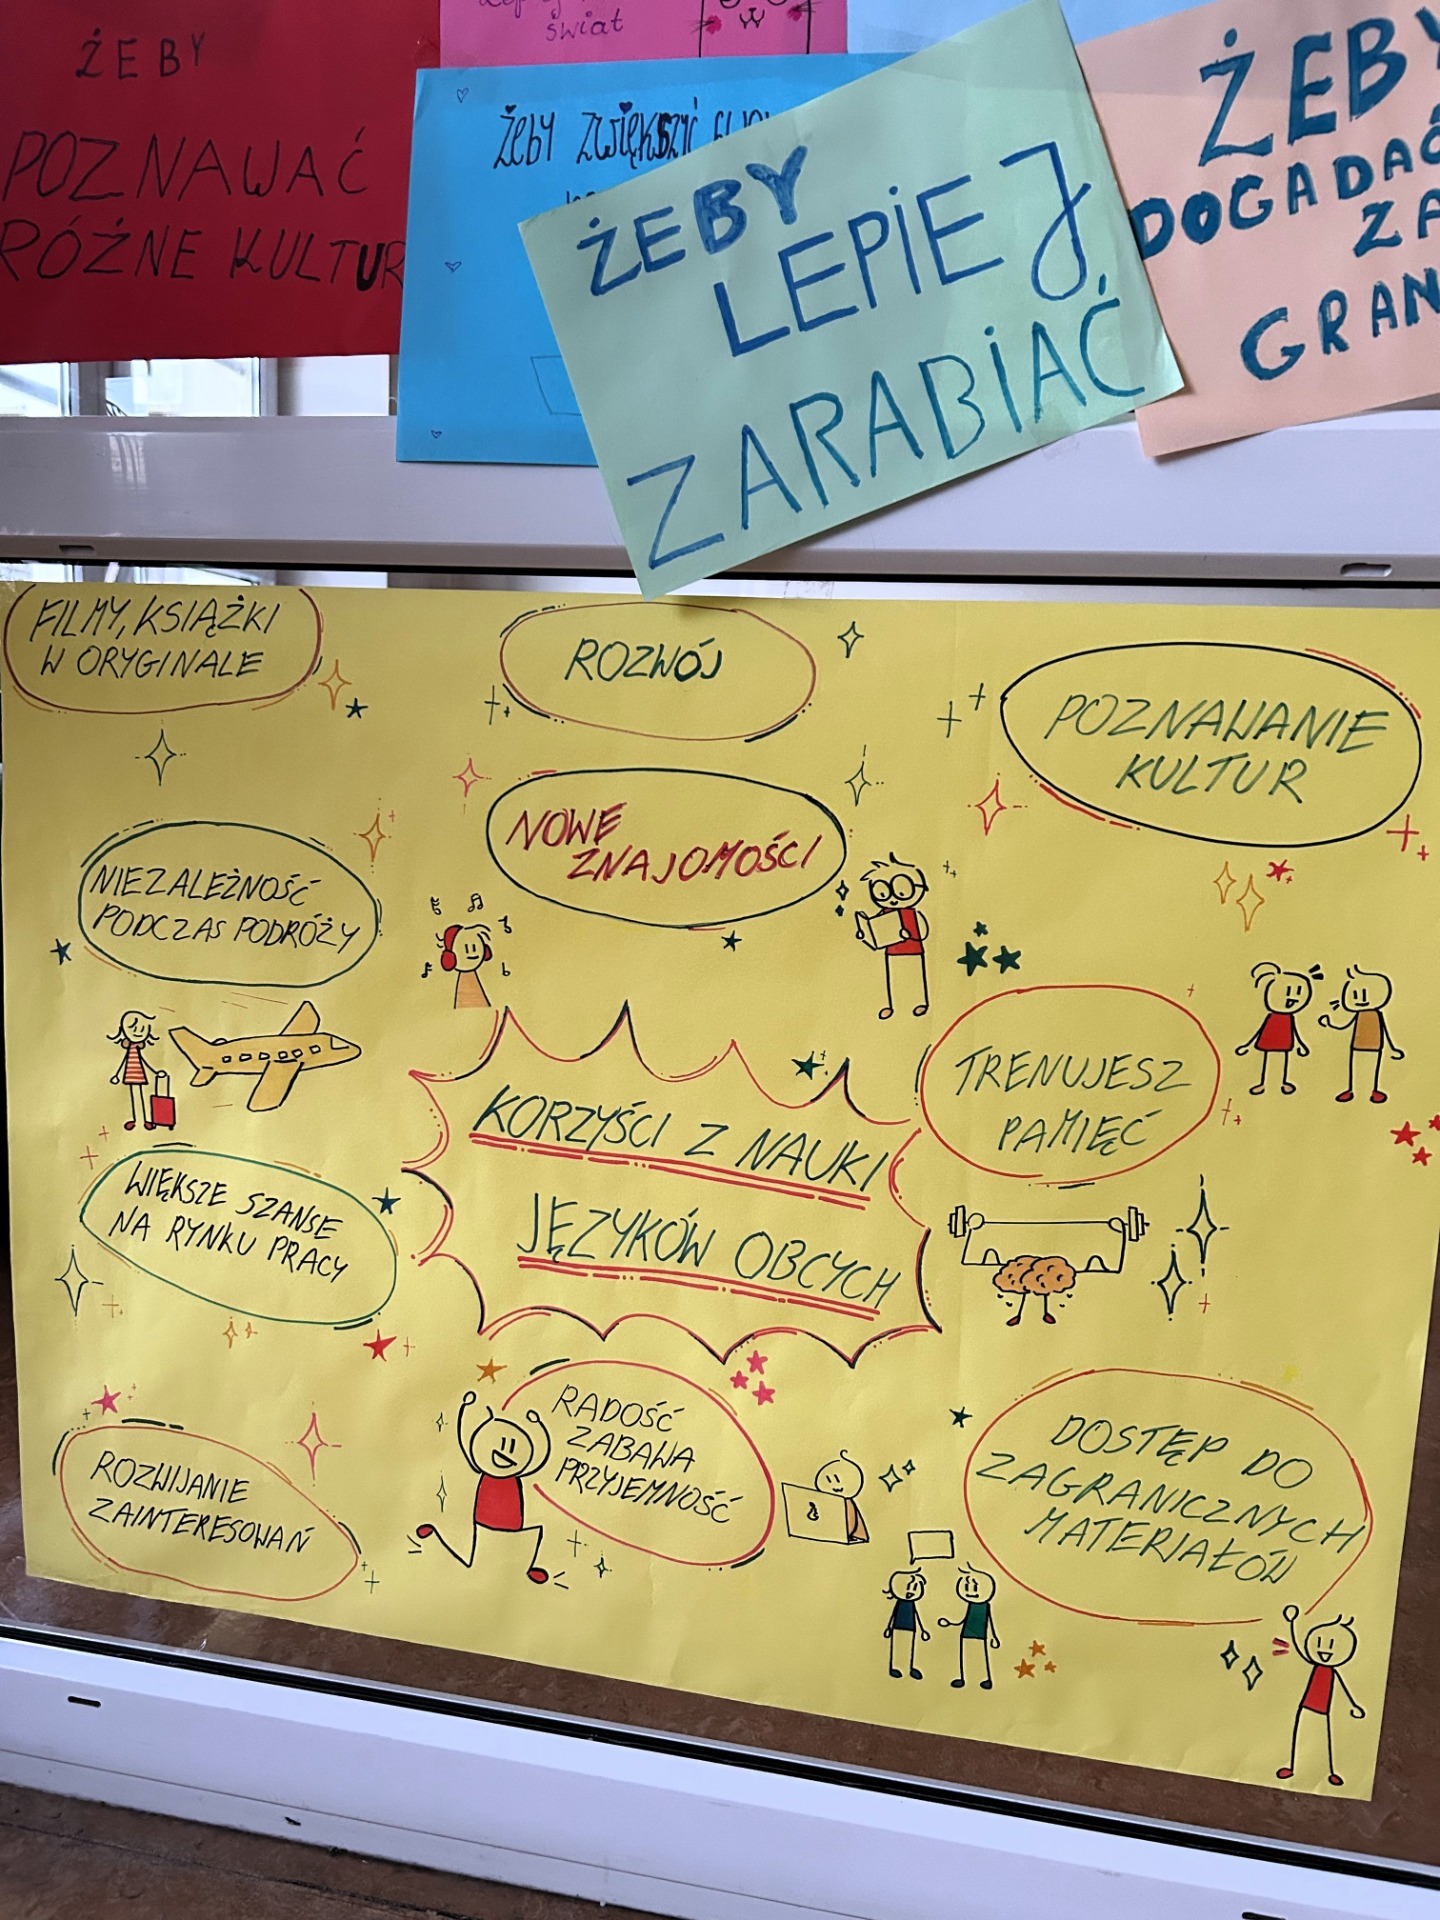 ŻEBY
POZNAWAĆ
RÓŻNE KULTUR
świat
żeby zwiększyć
ŻEBY
LEPIEJ
ZARABIAĆ
ŻEBY
DOGADAĆ
ZA
GRAN
FILMY, KSIĄŻKI
W ORYGINALE
ROZWÓJ
POZNAWANIE
KULTUR
NOWE
ZNAJOMOŚCI
NIEZALEŻNOŚĆ
PODCZAS PODRÓŻY
TRENUJESZ
PAMIĘĆ
KORZYŚCI Z NAUKI
JĘZYKÓW OBCYCH
WIĘKSZE SZANSE
NA RYNKU PRACY
RADOŚĆ
ZABAWA
PRZYJEMNOŚĆ
ROZWIJANIE
ZAINTERESOWAŃ
DOSTĘP DO
ZAGRANICZNYCH
MATERIAŁÓW